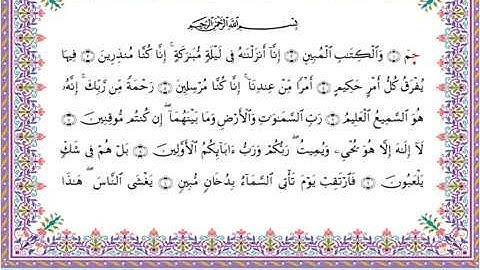 بِسْمِ ٱللَّهِ ٱلرَّحْمَٰنِ ٱلرَّحِيمِ
حمٓ ۝ وَٱلْكِتَٰبِ ٱلْمُبِينِ ۝ إِنَّآ أَنزَلْنَٰهُ فِى لَيْلَةٍ مُّبَٰرَكَةٍ ۚ إِنَّا كُنَّا مُنذِرِينَ ۝ فِيهَا
يُفْرَقُ كُلُّ أَمْرٍ حَكِيمٍ ۝ أَمْرًا مِّنْ عِندِنَآ ۚ إِنَّا كُنَّا مُرْسِلِينَ ۝ رَحْمَةً مِّن رَّبِّكَ ۚ إِنَّهُۥ
هُوَ ٱلسَّمِيعُ ٱلْعَلِيمُ ۝ رَبِّ ٱلسَّمَٰوَٰتِ وَٱلْأَرْضِ وَمَا بَيْنَهُمَآ ۖ إِن كُنتُم مُّوقِنِينَ ۝
لَآ إِلَٰهَ إِلَّا هُوَ يُحْىِۦ وَيُمِيتُ ۖ رَبُّكُمْ وَرَبُّ ءَابَآئِكُمُ ٱلْأَوَّلِينَ ۝ بَلْ هُمْ فِى شَكٍّ
يَلْعَبُونَ ۝ فَٱرْتَقِبْ يَوْمَ تَأْتِى ٱلسَّمَآءُ بِدُخَانٍ مُّبِينٍ ۝ يَغْشَى ٱلنَّاسَ ۖ هَٰذَا